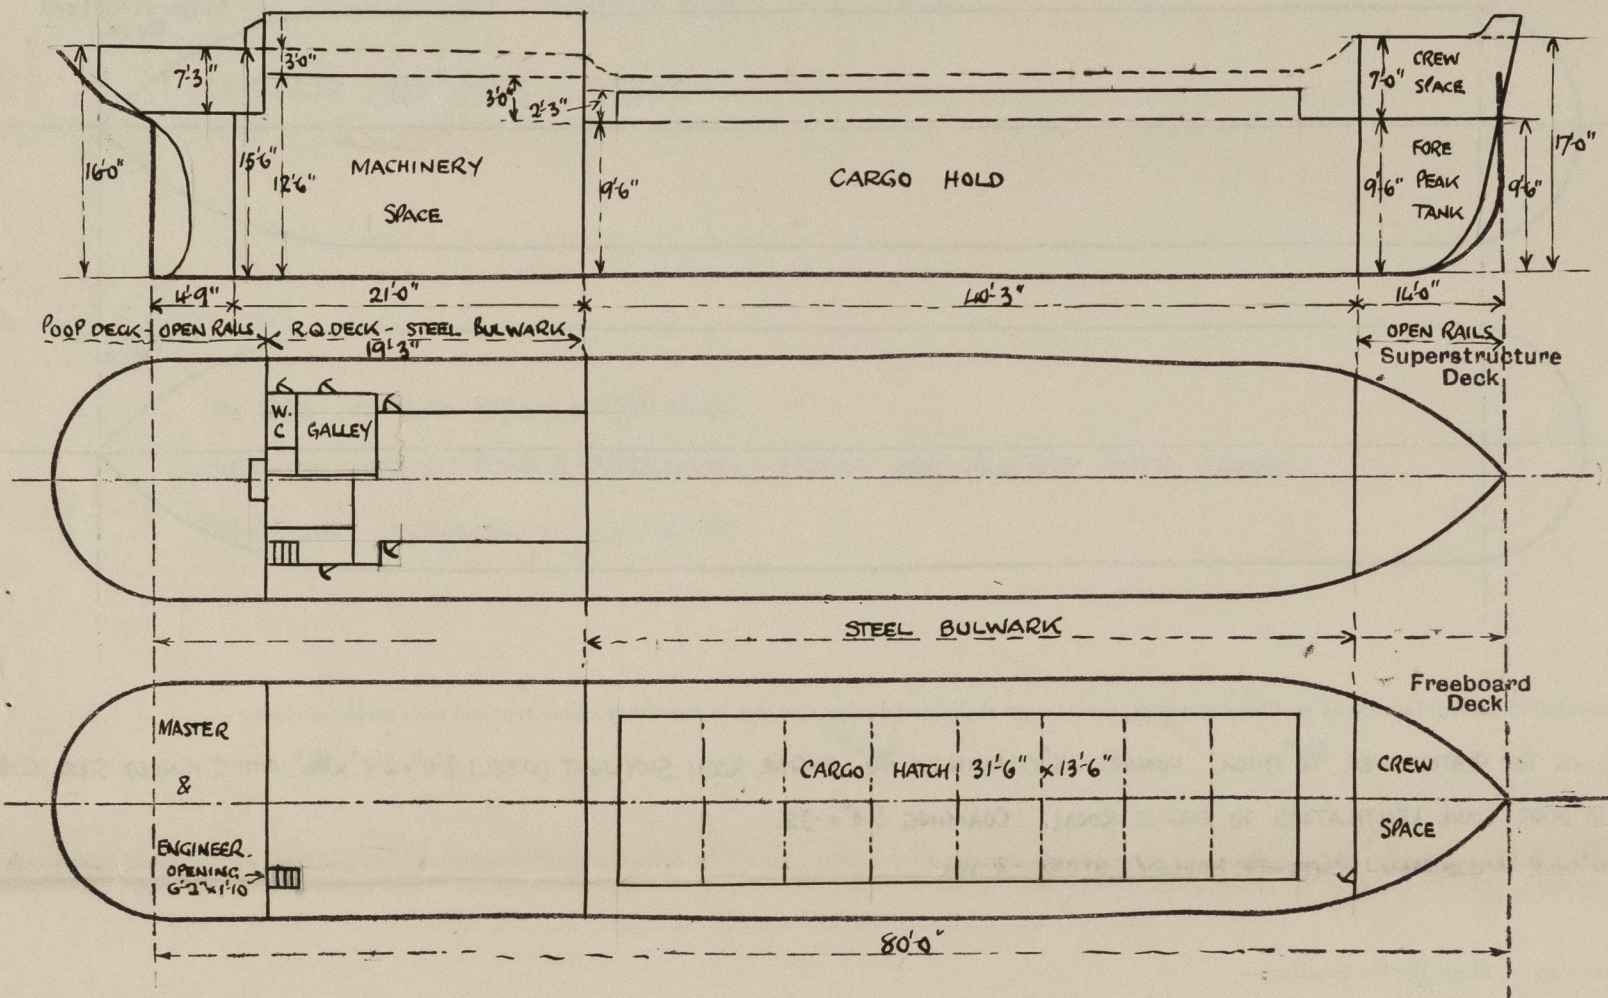 3'-0"
7'-3"
CREW
SPACE
7'-0"
3'-0"
2'-3"
16'-0"
15'-6"
12'-6"
MACHINERY
SPACE
9'-6"
CARGO HOLD
9'-6"
FORE
PEAK
TANK
9'-6"
17'-0"
4'-9"
21'-0"
40'-3"
14'-0"
POOP DECK - OPEN RAILS
R.Q.DECK - STEEL BULWARK
19'-3"
OPEN RAILS
Superstructure
Deck
W.
C
GALLEY
STEEL BULWARK
Freeboard
Deck
MASTER
&
ENGINEER.
OPENING
6'-2" x 1'-10"
CARGO HATCH 31'-6" x 13'-6"
CREW
SPACE
80'-0"